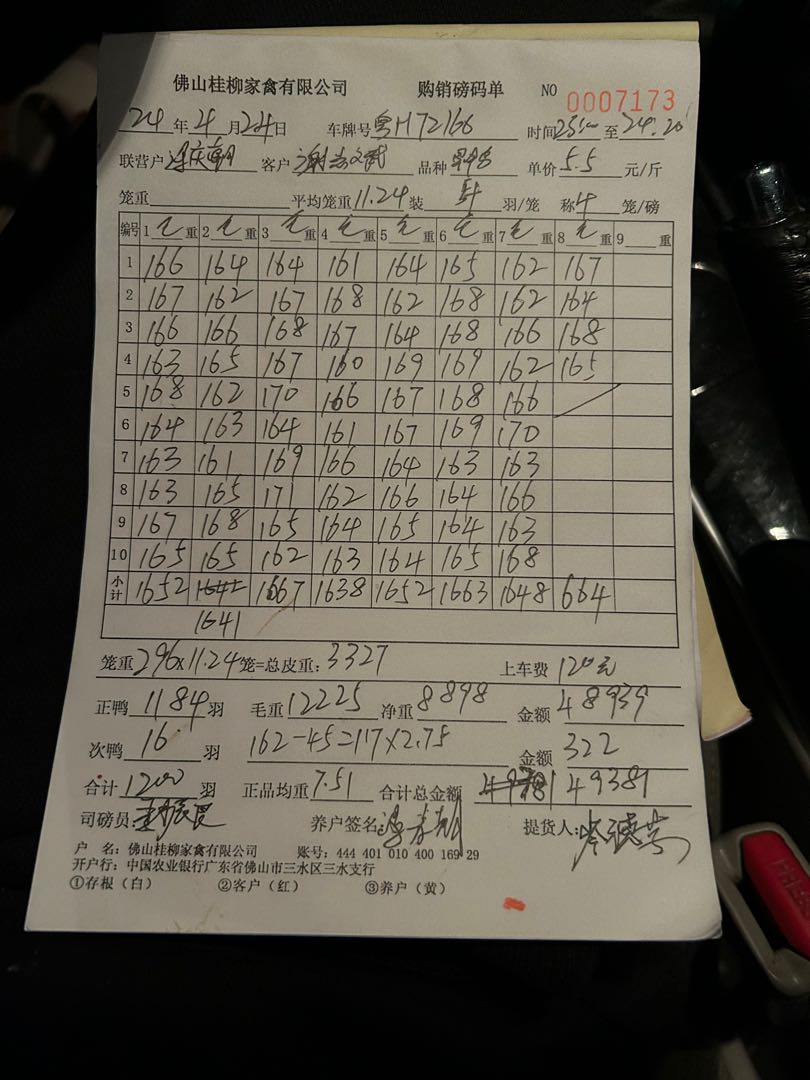 佛山桂柳家禽有限公司 购销磅码单 NO 0007173
24 年 4 月 24 日 车牌号 粤H72166 时间 23:50 至 24.20
联营户 客户 品种 单价 5.5 元/斤
笼重 平均笼重 11.24 装 羽/笼 称 4 笼/磅
编号 1 毛 重 2 毛 重 3 毛 重 4 毛 重 5 毛 重 6 毛 重 7 毛 重 8 毛 重 9 重
1 166 164 164 161 164 165 162 167
2 167 162 167 168 162 168 162 164
3 166 166 168 167 164 168 166 168
4 163 165 167 160 169 169 162 165
5 168 162 170 166 167 168 166
6 164 163 164 161 167 169 170
7 163 161 169 166 164 163 163
8 163 165 171 162 166 164 166
9 167 168 165 164 165 164 163
10 165 165 162 163 164 165 168
小计 1652 1642 1667 1638 1652 1663 1648 664
1641
笼重 296×11.24 笼=总皮重: 3327 上车费 120元
正鸭 1184 羽 毛重 12225 净重 8898 金额 48939
次鸭 16 羽 162-45=117×2.75 金额 322
合计 1200 羽 正品均重 7.51 合计总金额 49381
司磅员: 养户签名: 提货人:
户 名: 佛山桂柳家禽有限公司 账号: 444 401 010 400 169 29
开户行: 中国农业银行广东省佛山市三水区三水支行
①存根（白） ②客户（红） ③养户（黄）